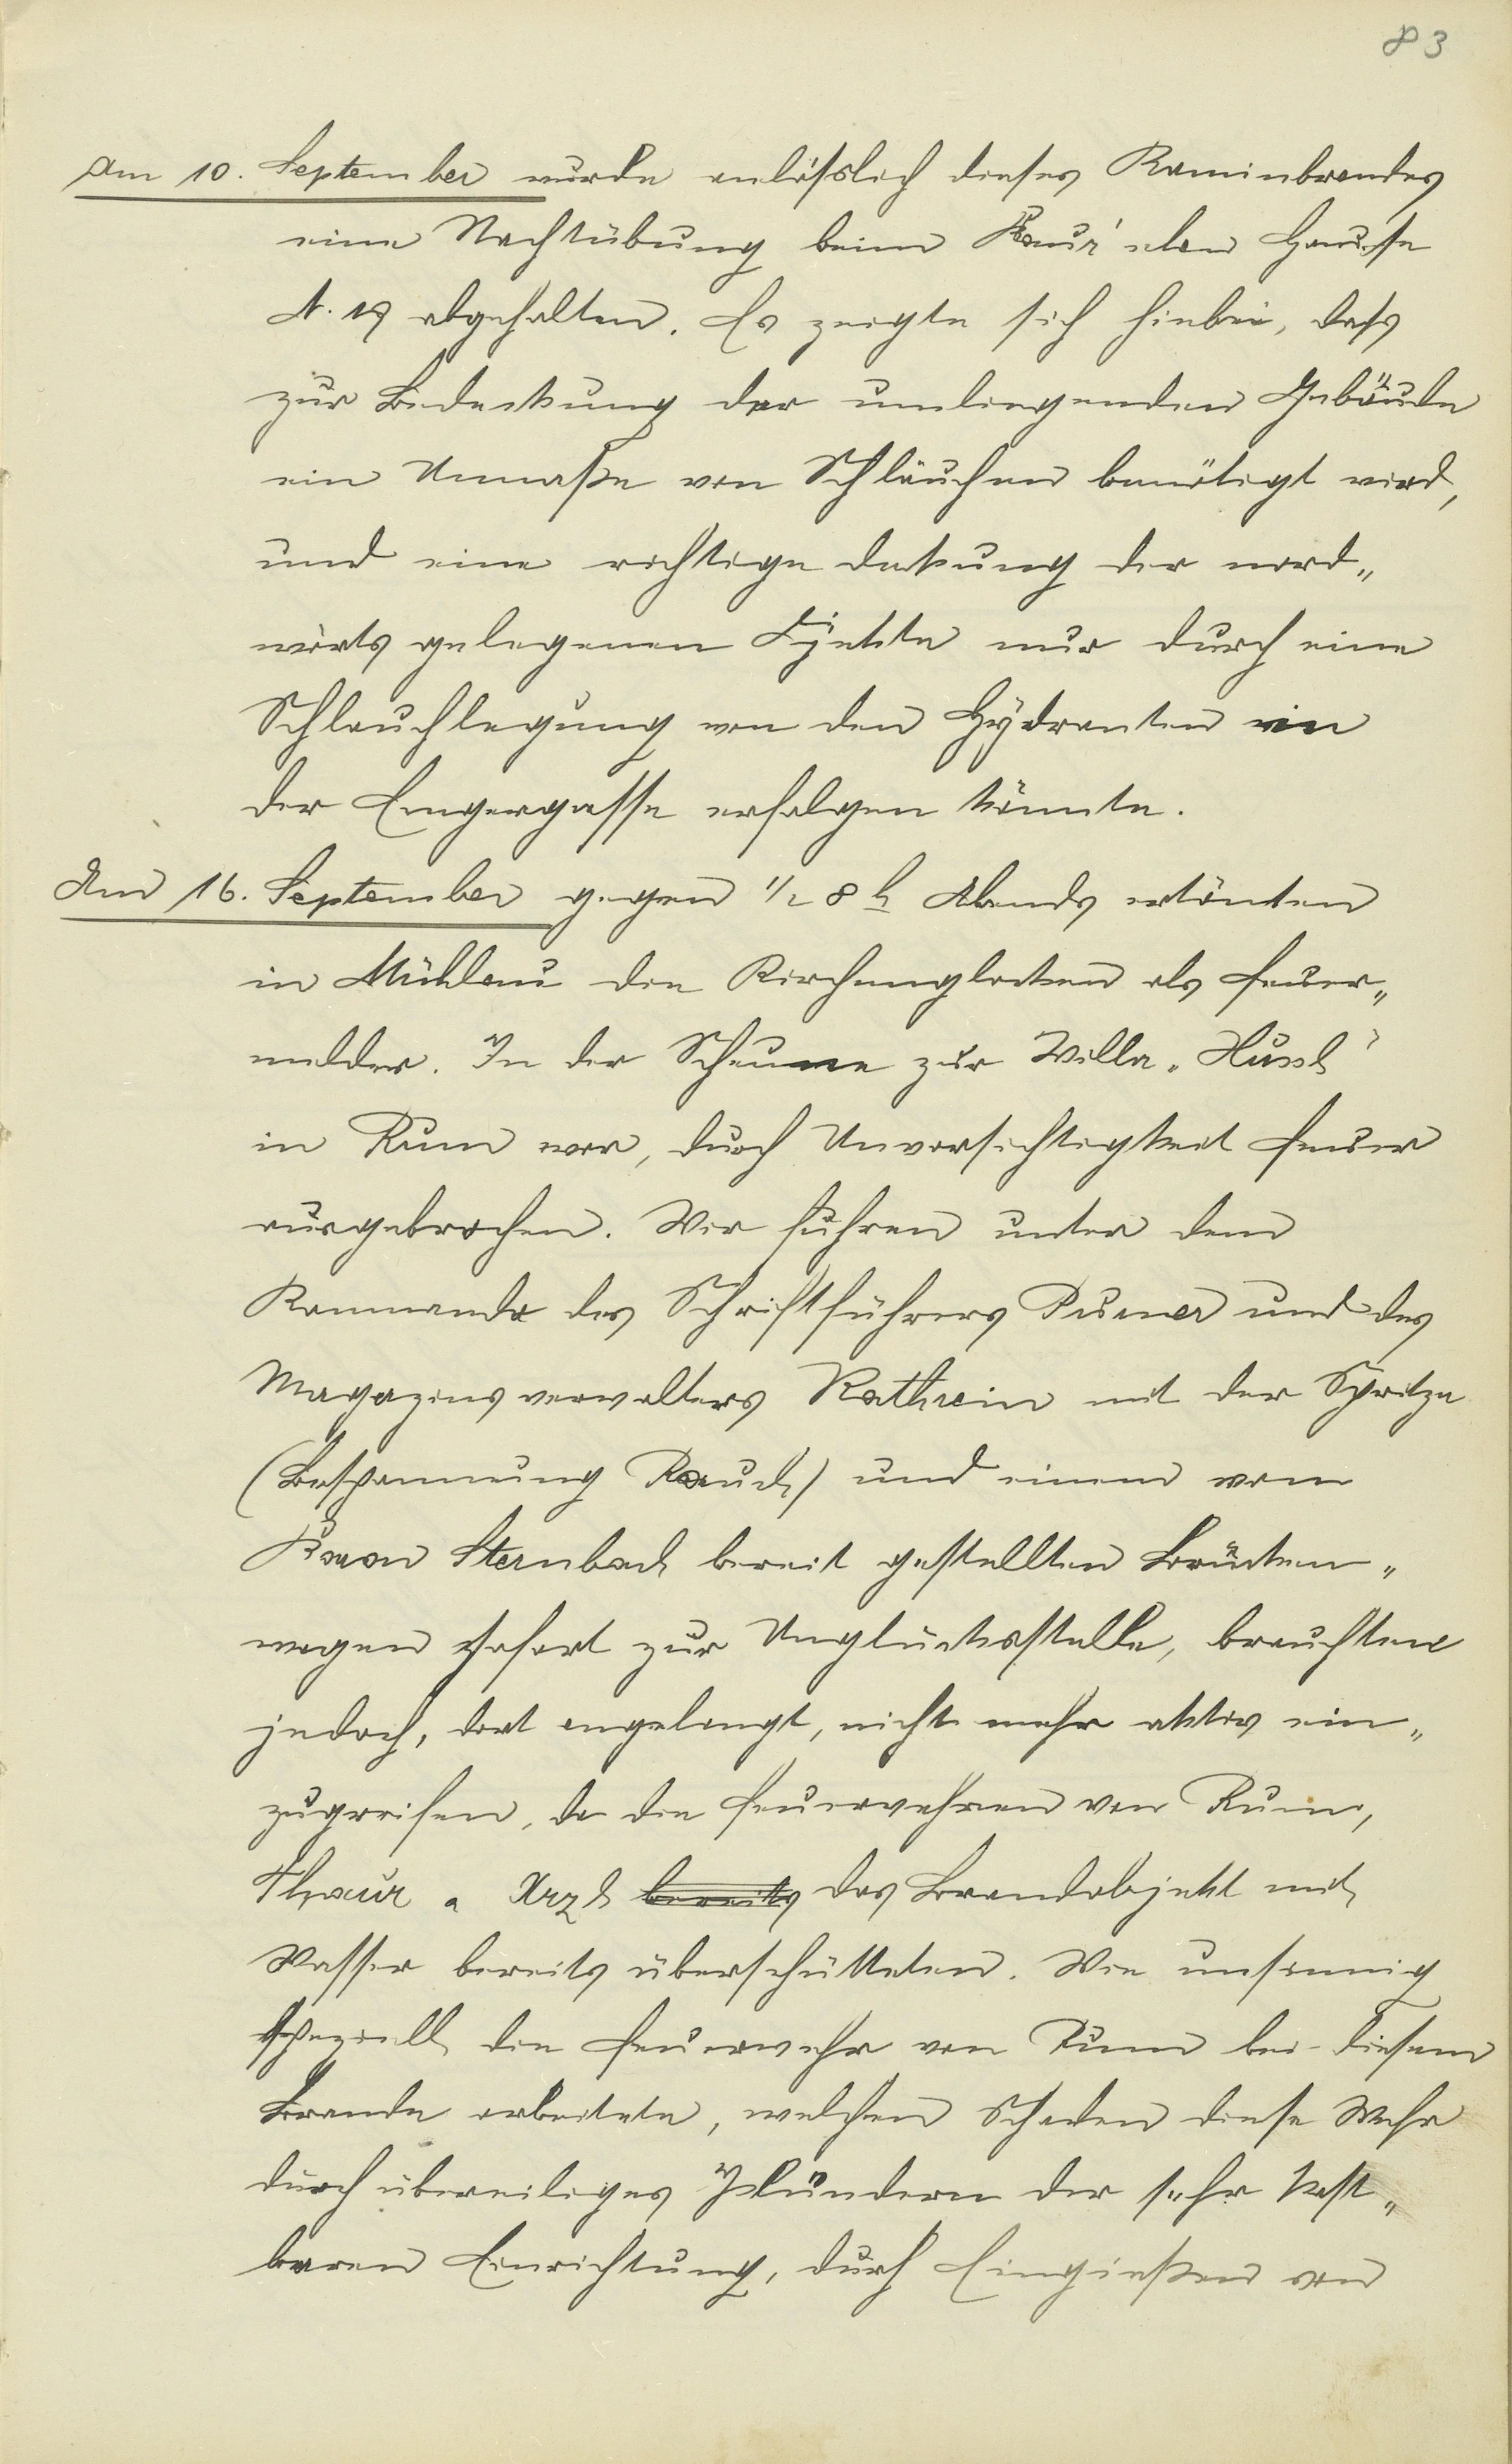 83
Am 10. September wurde anlässlich dieses Kaminbrandes
eine Nachtübung beim Baur'schen Hause
N. 19 abgehalten. Es zeigte sich hiebei, dass
zur Bedeckung der umliegenden Gebäude
ein Unmaße von Schläuchen benötigt wird,
und eine richtige Deckung der nord„
wärts gelegenen Objekte nur durch eine
Schlauchlegung von den Hydranten in
der Angergasse erfolgen könnte.
Am 16. September gegen 1/2 8 h Abends ertönten
in Mühlau die Kirchenglocken als Feuer„
melder. In der Scheune zur Villa „
in Rum war, durch Unvorsichtigkeit Feuer
ausgebrochen. Wir fuhren unter dem
Kommando des Schriftführers und des
Magazinsverwalters Kathrein mit der Spritze
(Bespannung Rauch) und einem vom
Baron Sternbach bereit gestellten Brücken„
wagen sofort zur Unglücksstelle, brauchten
jedoch, dort angelangt, nicht mehr aktiv ein„
zugreifen, da die Feuerwehren von Rum,
Thaur u. Arzl bereits das Brandobjekt mit
Wasser bereits überschütteten. Wie unsinnig
speziell die Feuerwehr von Rum bei diesem
Brande arbeitete, welchen Schaden diese Wehr
durch übereiliges Plündern der sehr kost„
baren Einrichtung, durch Eingießen von